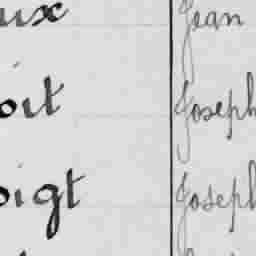 ux Jean
oit Joseph
oigt Joseph